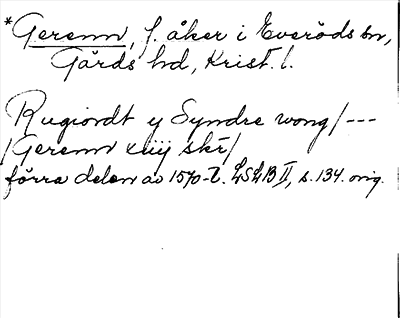 *Gerenn, f. åker i Everöds sn,
Gärds hd, Krist. l.
Rugiordt y Syndre wong/---
/Gerenn xiiij skr/
förra delen av 1570-t. LSLB II, s. 134. orig.